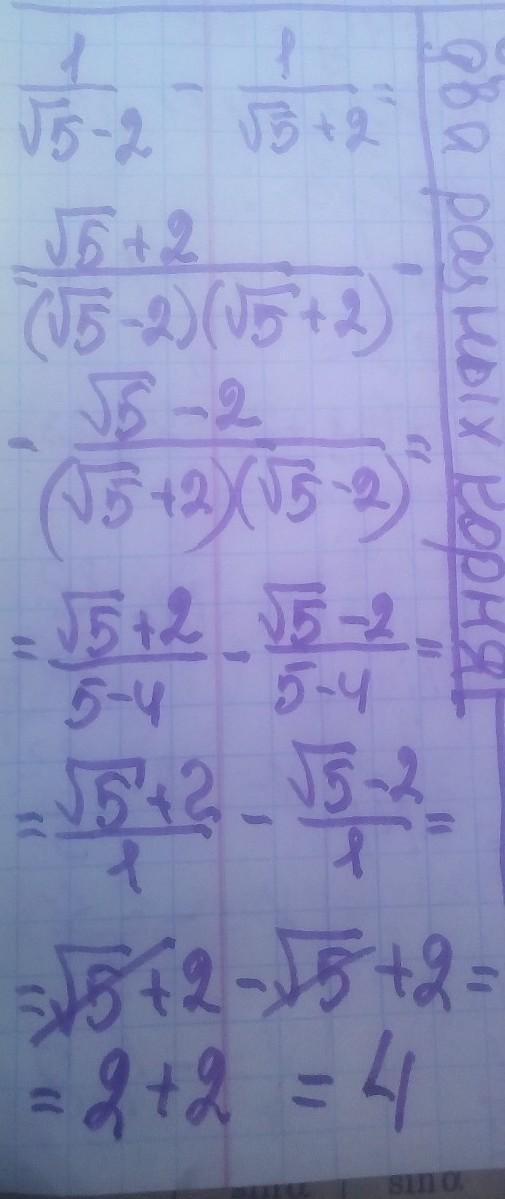 1/(√5-2) - 1/(√5+2) =
= (√5+2)/((√5-2)(√5+2)) -
- (√5-2)/((√5+2)(√5-2)) =
= (√5+2)/(5-4) - (√5-2)/(5-4) =
= (√5+2)/1 - (√5-2)/1 =
= √5+2-√5+2 =
= 2+2 = 4
два разных корня
sinα
sinα